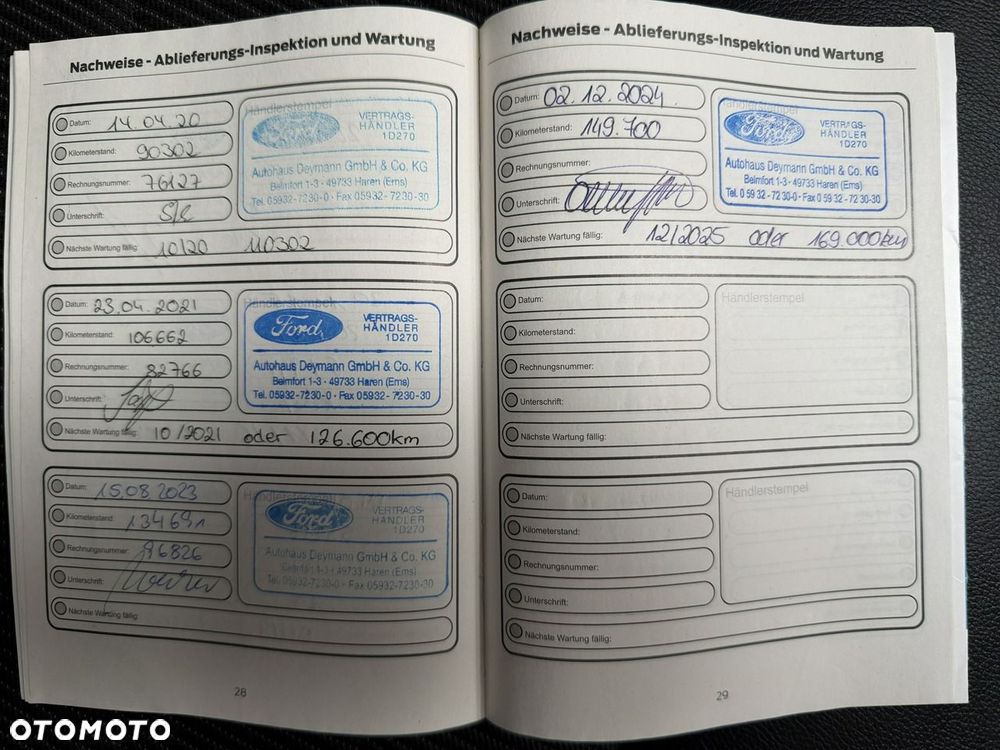 Nachweise - Ablieferungs-Inspektion und Wartung
Datum: 14.04.20
Kilometerstand: 90302
Rechnungsnummer: 76127
Unterschrift:
Nächste Wartung fällig: 10/20 110302
Händlerstempel
Ford
VERTRAGS-
HÄNDLER
1D270
Autohaus Deymann GmbH & Co. KG
Beimfort 1-3 - 49733 Haren (Ems)
Tel. 05932-7230-0 - Fax 05932-7230-30
Datum: 23.04.2021
Kilometerstand: 106662
Rechnungsnummer: 82766
Unterschrift:
Nächste Wartung fällig: 10/2021 oder 126.600km
Händlerstempel
Ford
VERTRAGS-
HÄNDLER
1D270
Autohaus Deymann GmbH & Co. KG
Beimfort 1-3 - 49733 Haren (Ems)
Tel. 05932-7230-0 - Fax 05932-7230-30
Datum: 15.08.2023
Kilometerstand: 134691
Rechnungsnummer: 96826
Unterschrift:
Nächste Wartung fällig:
Händlerstempel
Ford
VERTRAGS-
HÄNDLER
1D270
Autohaus Deymann GmbH & Co. KG
Beimfort 1-3 - 49733 Haren (Ems)
Tel. 05932-7230-0 - Fax 05932-7230-30
28
Nachweise - Ablieferungs-Inspektion und Wartung
Datum: 02.12.2024.
Kilometerstand: 149.700
Rechnungsnummer:
Unterschrift:
Nächste Wartung fällig: 12/2025 oder 169.000km
Händlerstempel
Ford
VERTRAGS-
HÄNDLER
1D270
Autohaus Deymann GmbH & Co. KG
Beimfort 1-3 - 49733 Haren (Ems)
Tel. 0 59 32-72 30-0 - Fax 0 59 32-72 30-30
Datum:
Kilometerstand:
Rechnungsnummer:
Unterschrift:
Nächste Wartung fällig:
Händlerstempel
Datum:
Kilometerstand:
Rechnungsnummer:
Unterschrift:
Nächste Wartung fällig:
Händlerstempel
29
OTOMOTO